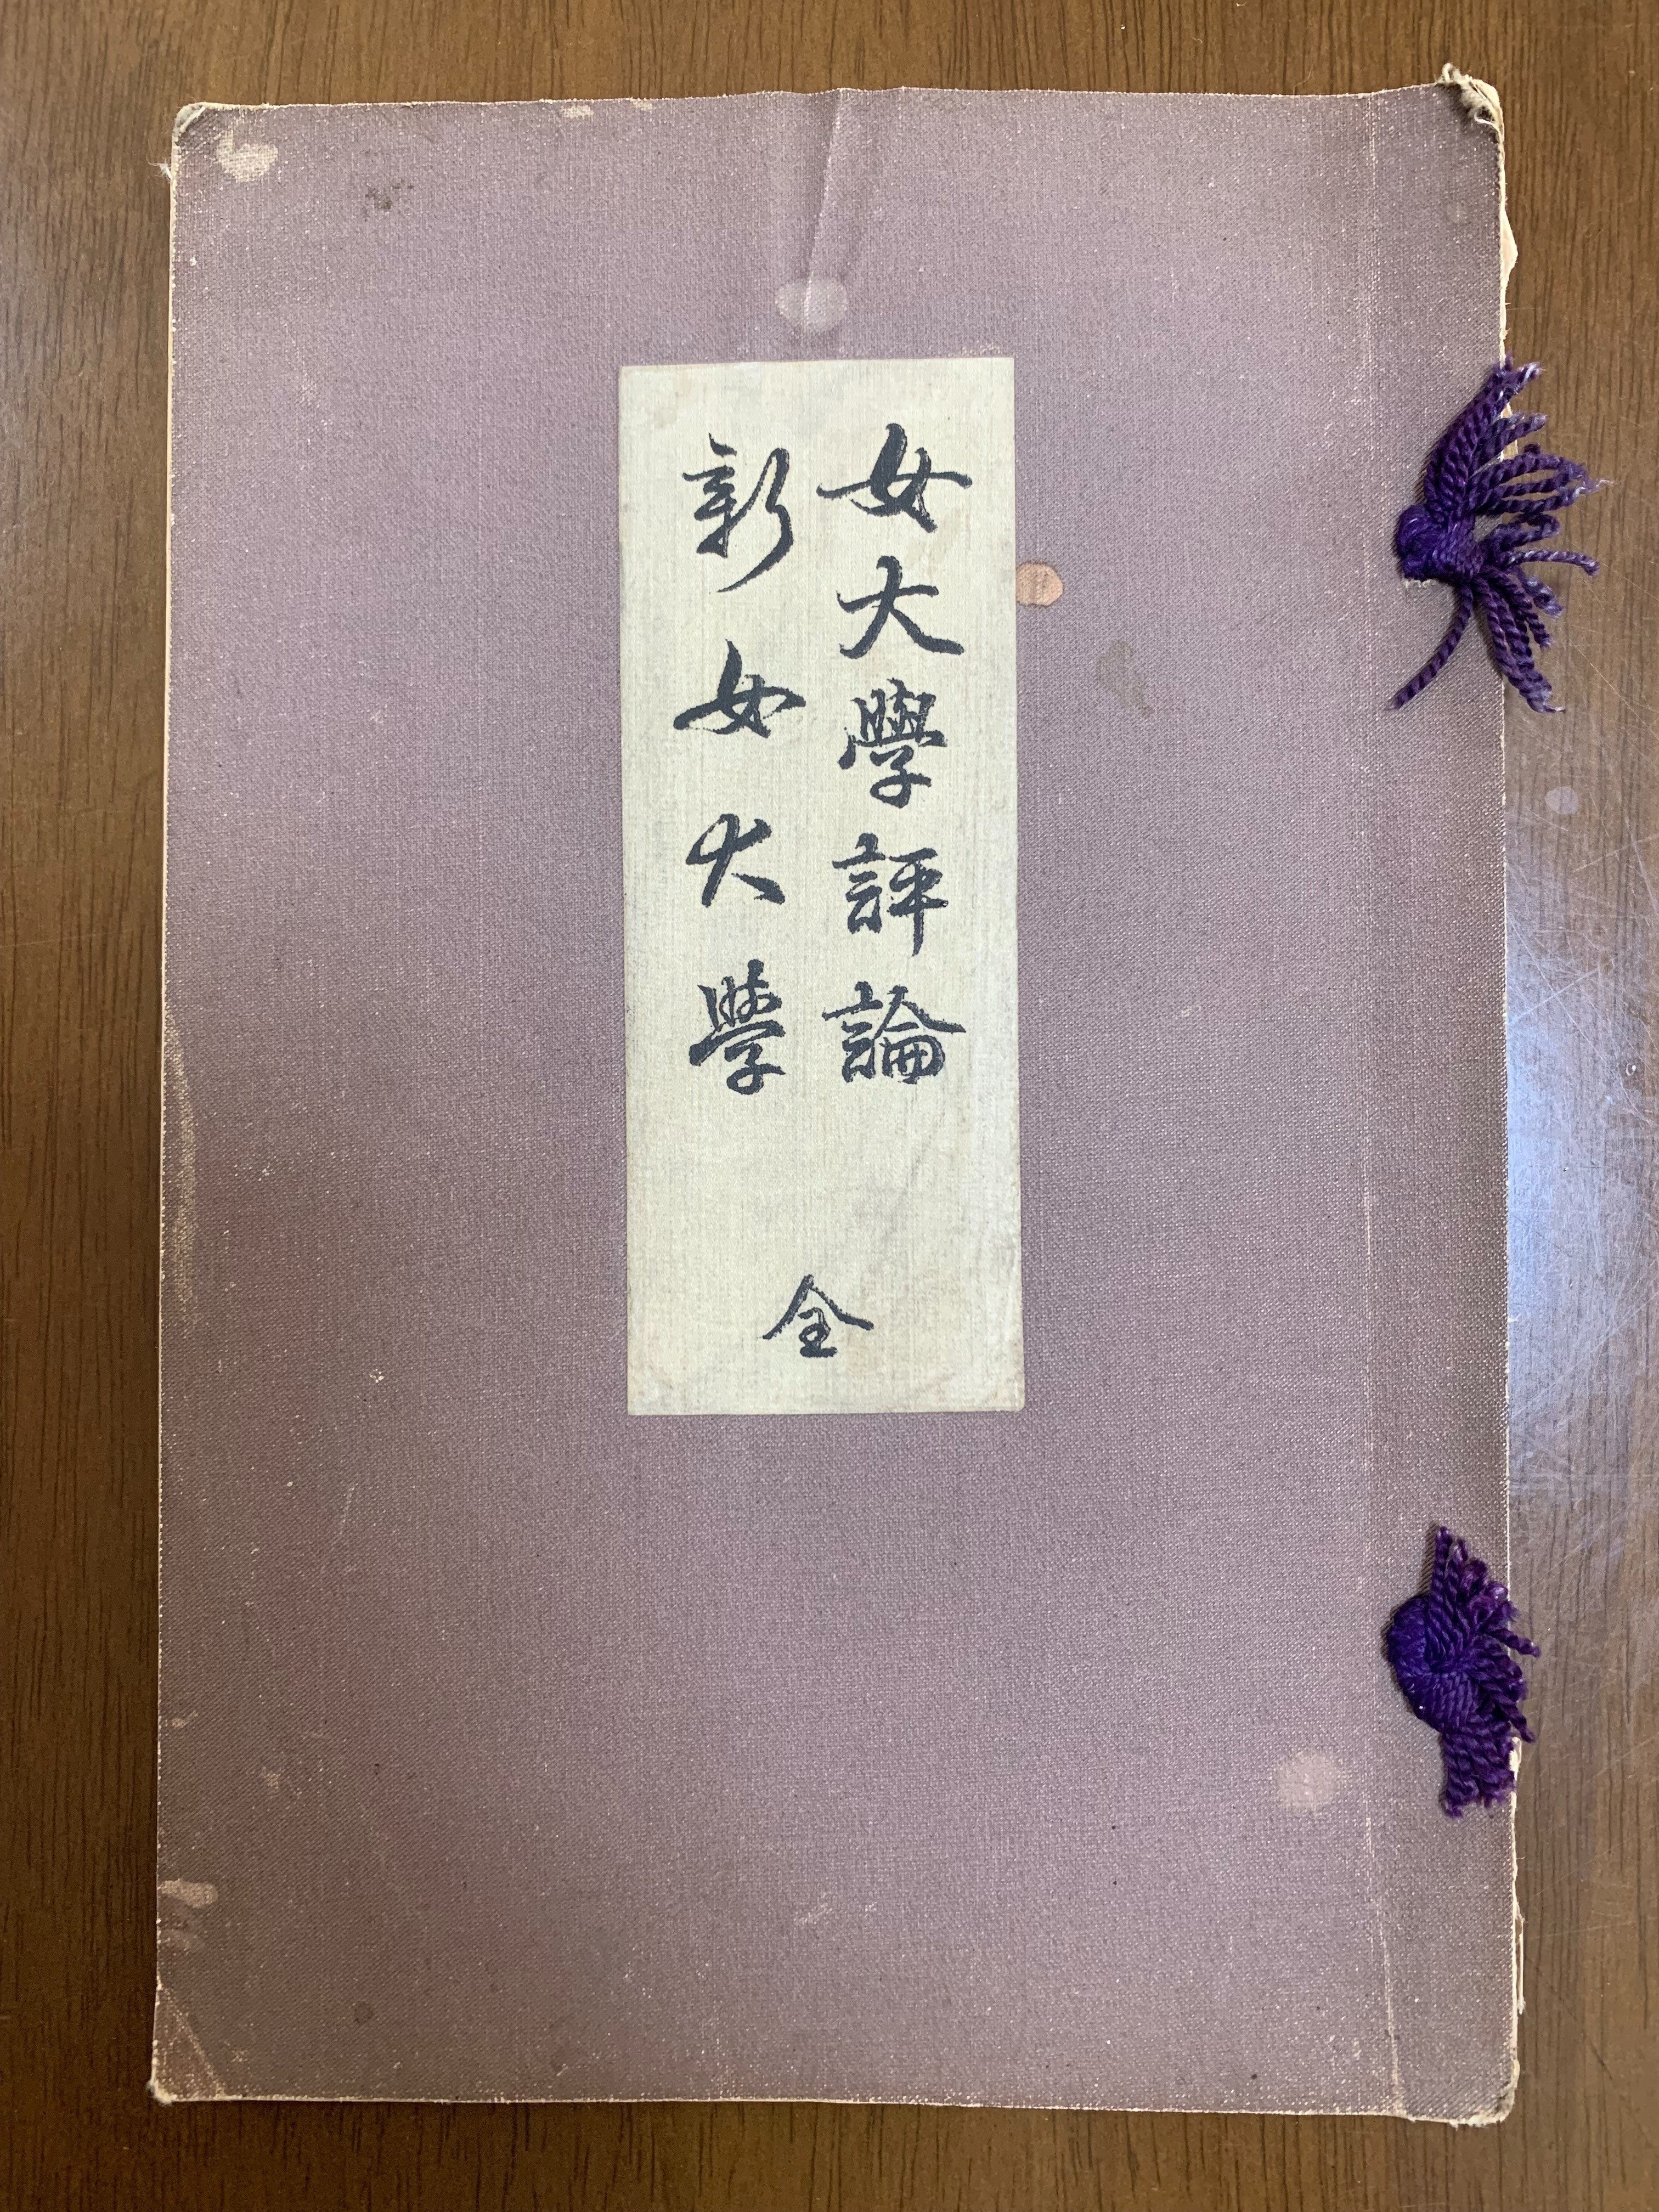 女大學評論
新女大學
全